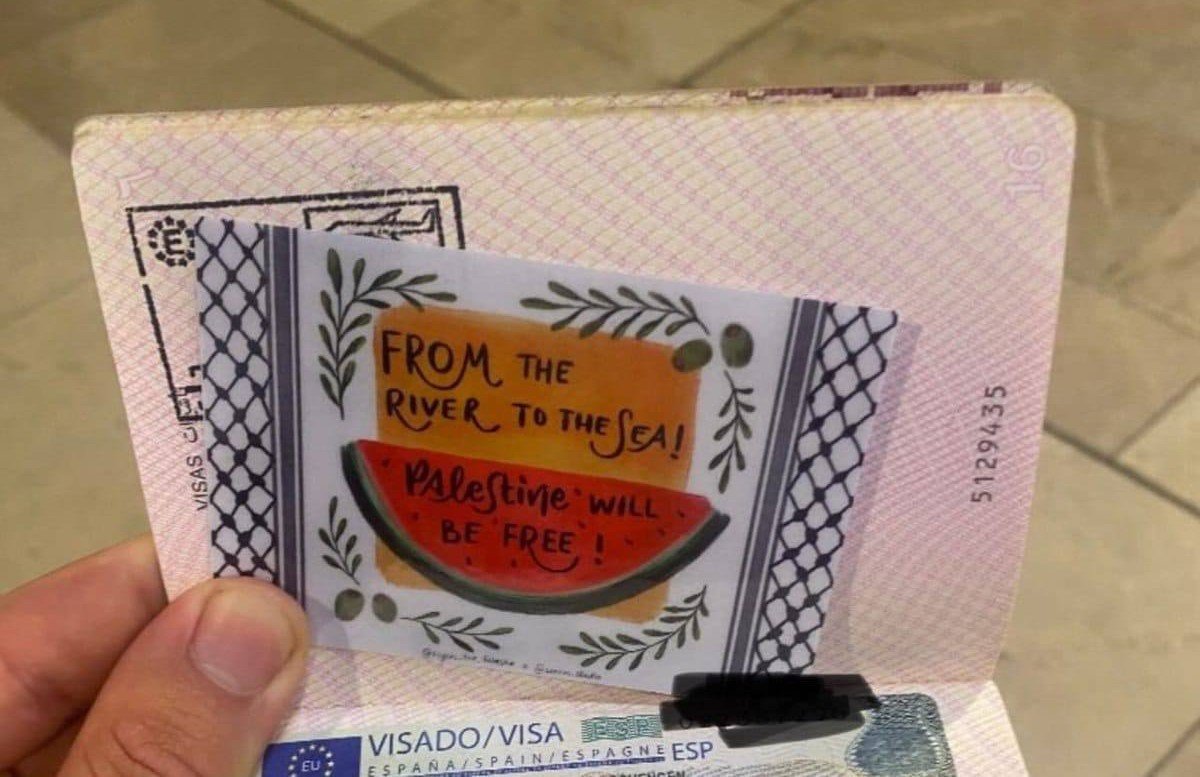 16
E
FROM THE
RIVER TO THE SEA!
Palestine WILL
BE FREE!
VISAS
5129435
VISADO/VISA ESP
EU
ESPAÑA/SPAIN/ESPAGNE ESP